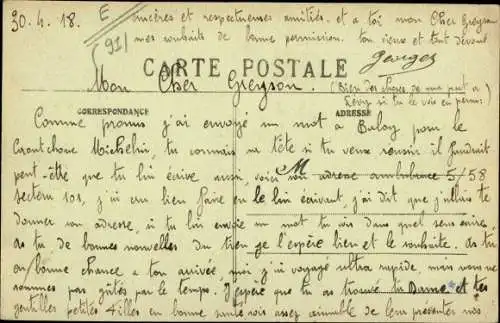 30.4.18. E sincères et respectueuses amitiés. et a toi mon Cher Greyson
(91) mes souhaits de bonne permission. ton vieux et tout dévoué
Georges
CARTE POSTALE
Mon Cher Greyson. (Bien des choses de ma part a
Levy si tu le vois en perme.)
CORRESPONDANCE ADRESSE
Comme promis j'ai envoyé un mot à Baloy pour le
Caoutchouc Michelin, tu connais sa tête si tu veux reussir il faudrait
peut-être que tu lui écrive aussi, voici son adresse ambulance 5/58
secteur 101, j'ai cru bien faire en le lui écrivant, j'ai dit que j'allais te
donner son adresse, si tu lui envoie un mot tu vois dans quel sens écrire.
As tu de bonnes nouvelles du tien je l'espère bien et le souhaite. As tu
eu bonne chance a ton arrivée, moi j'ai voyagé ultra rapide, mais nous ne
sommes pas gâtés par le temps. J'espère que tu as trouvé ta Dame et tes
gentilles petites filles en bonne santé vois assez aimable de leur présenter mes